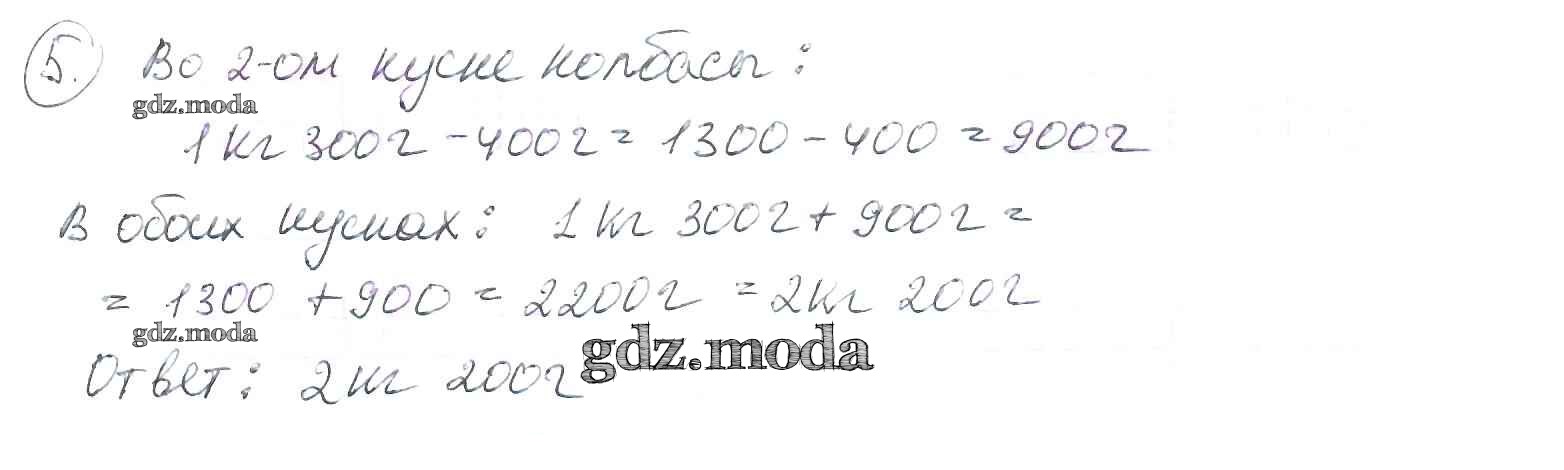 5. Во 2-ом куске колбасы:
gdz.moda
1кг 300г - 400г = 1300 - 400 = 900г
В обоих кусках: 1кг 300г + 900г =
= 1300 + 900 = 2200г = 2кг 200г
gdz.moda
gdz.moda
Ответ: 2кг 200г